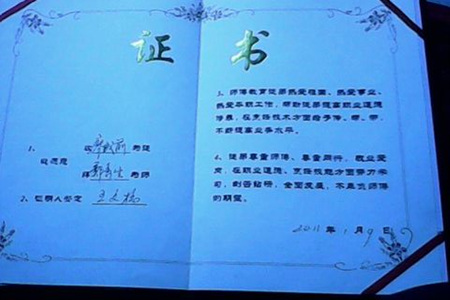 证 书
1、
收 老徒
设愿愿
拜 老师
2、证明人签定
3、师傅教育徒弟热爱祖国、热爱事业、
热爱本职工作，帮助徒弟提高职业道德
修养，在烹饪技术方面给予传、帮、带，
不断提高业务水平。
4、徒弟尊重师傅、尊重同行，敬业爱
岗，在职业道德、烹饪技能方面努力学
习，刻苦钻研，全面发展，不辜负师傅
的期望。
2011年1月9日